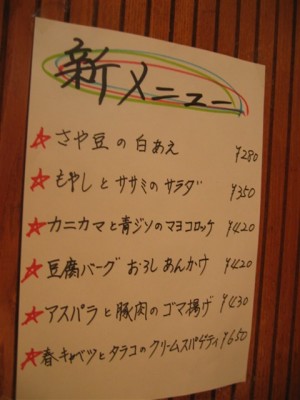 新メニュー
☆さや豆の白あえ ¥280
☆もやしとササミのサラダ ¥350
☆カニカマと青ジソのマヨコロッケ ¥420
☆豆腐バーグおろしあんかけ ¥420
☆アスパラと豚肉のゴマ揚げ ¥430
☆春キャベツとタラコのクリームスパゲティ ¥650